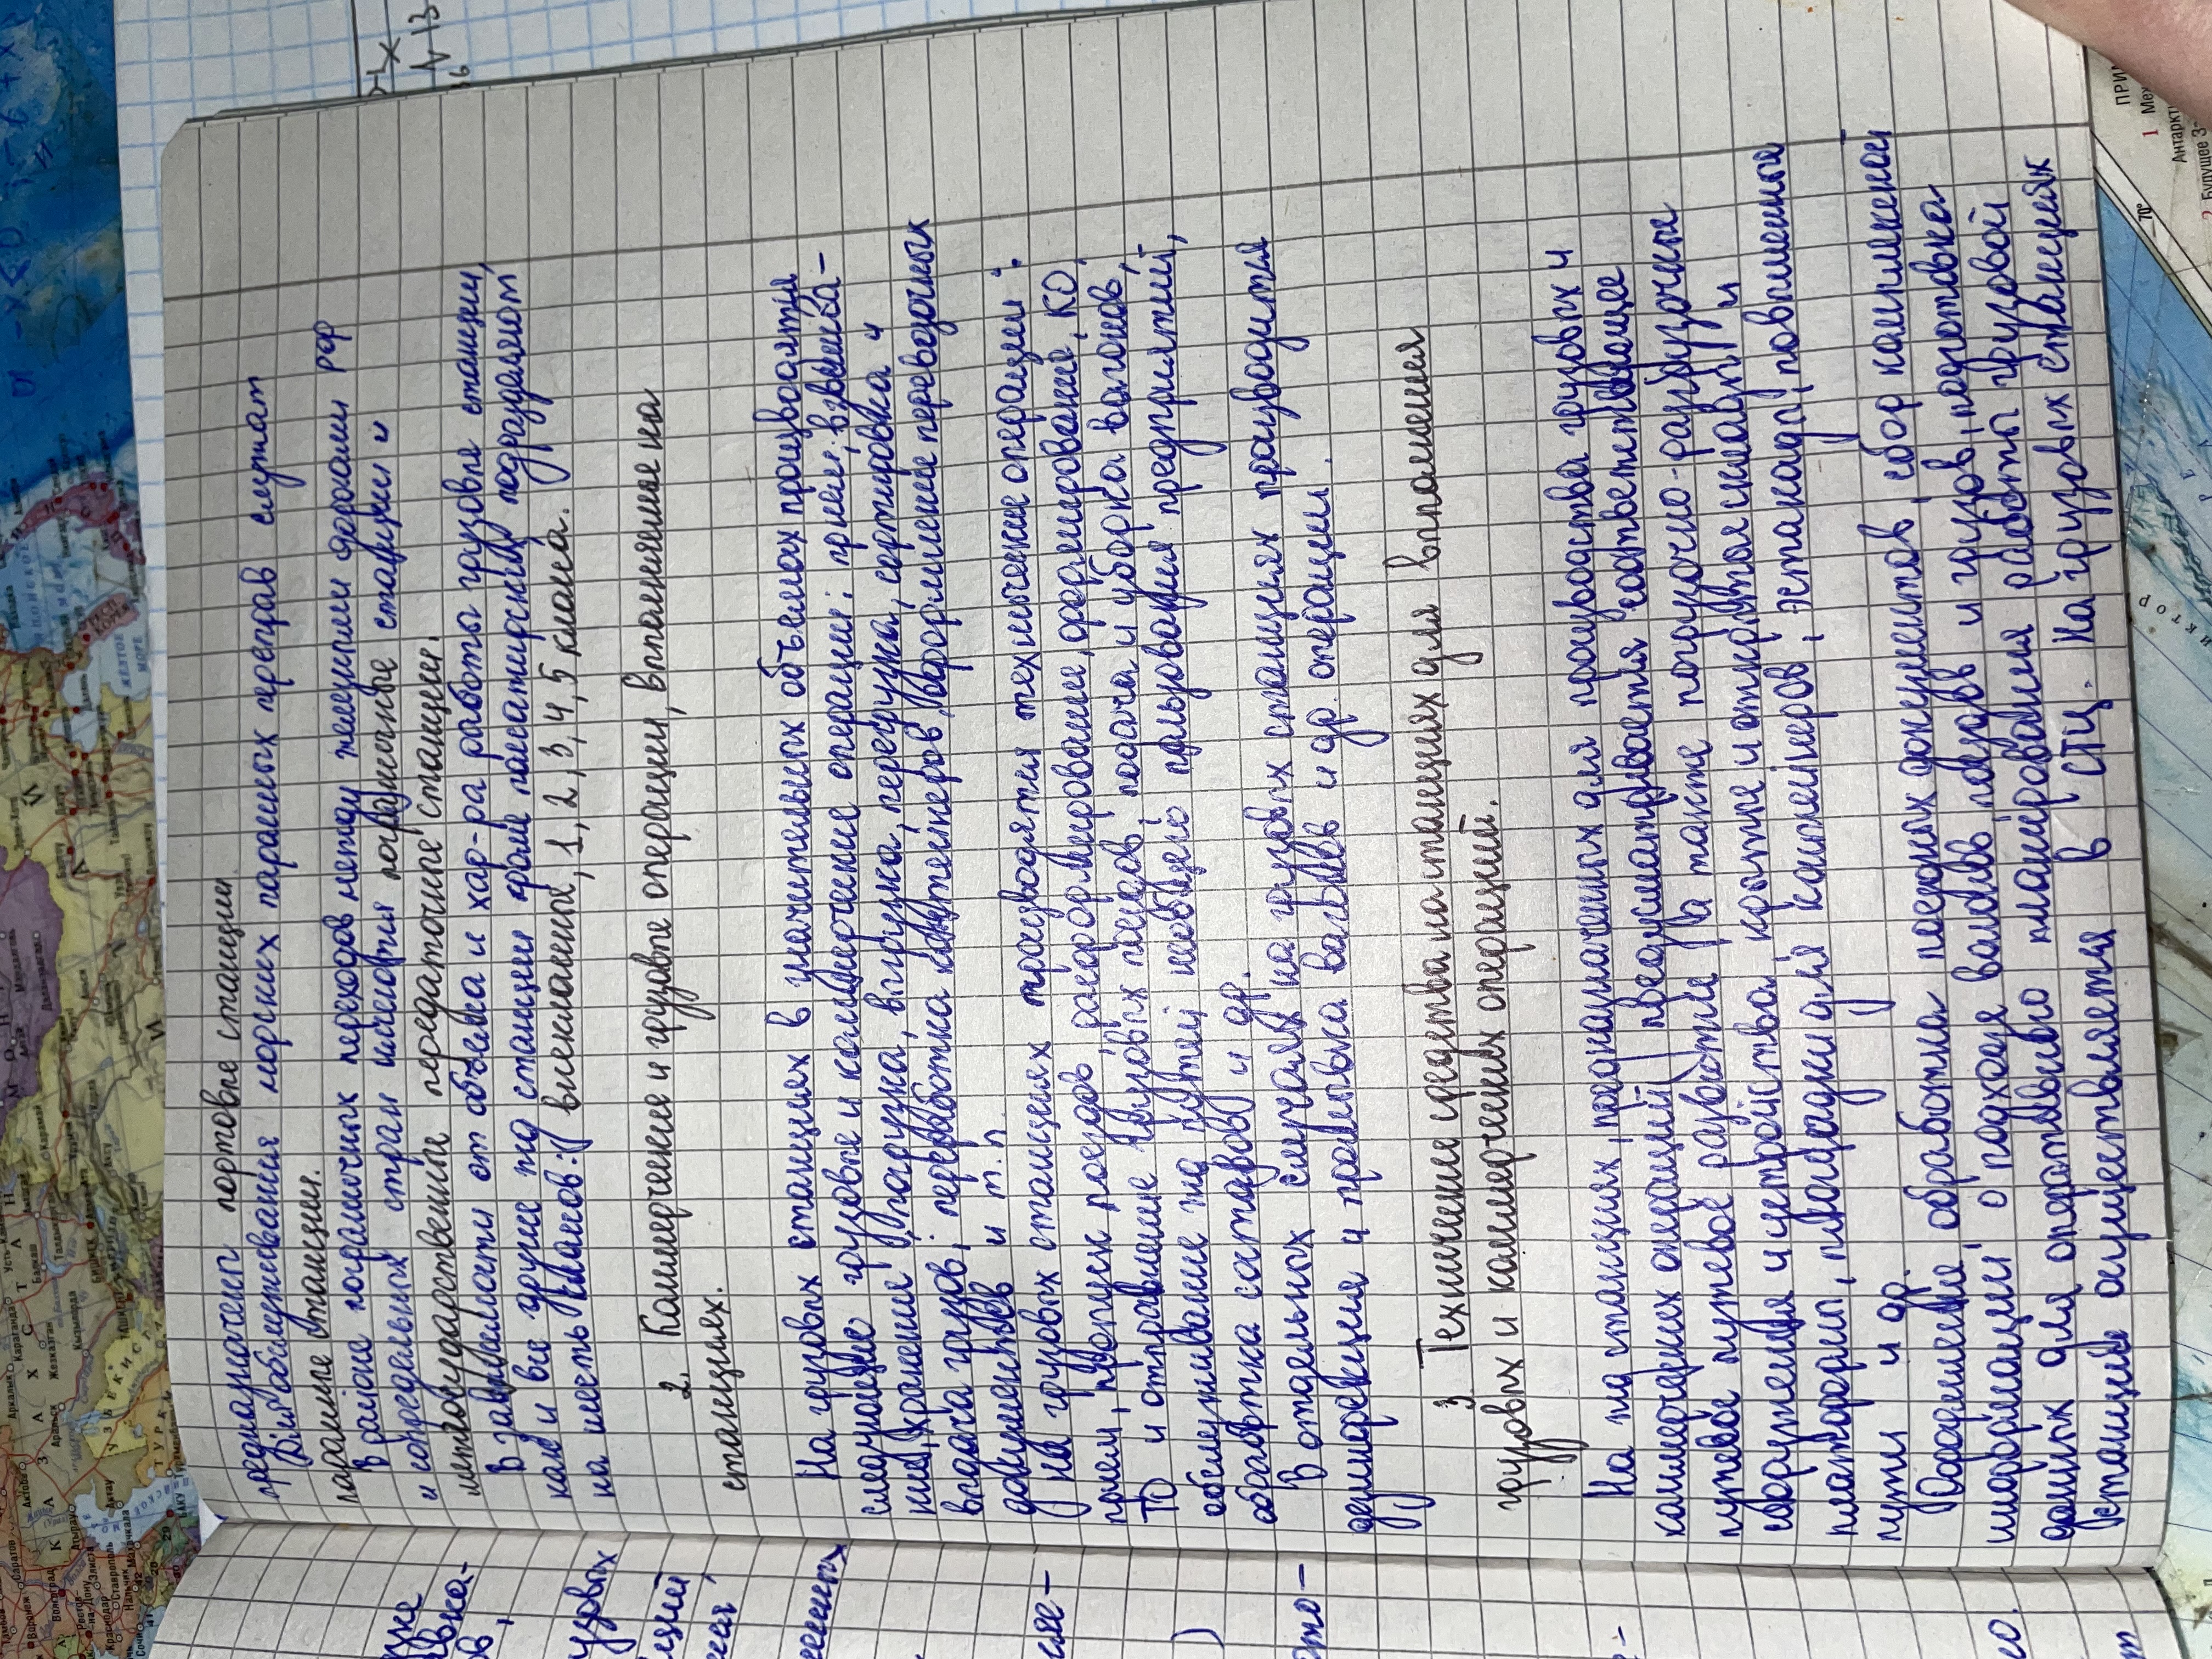 предназначены портовые станции.
Для обслуживания морских паромных переправ служат
паромные станции.
В районе пограничных переходов между железными дорогами РФ
и сопредельных стран имеются пограничные станции и
межгосударственные передаточные станции.
В зависимости от объема и хар-ра работы грузовые станции,
как и все другие ж/д станции кроме пассажирских, подразделяют
на шесть классов: внеклассные, 1, 2, 3, 4, 5 класса.
2. Коммерческие и грузовые операции, выполняемые на
станциях.
На грузовых станциях в значительных объемах производятся
следующие грузовые и коммерческие операции: прием; взвешива-
ние, хранение, погрузка, выгрузка, перегрузка, сортировка и
выдача грузов; переработка контейнеров, оформление перевозочных
документов и т.п.
На грузовых станциях производятся технические операции:
прием, пропуск поездов, расформирование, формирование, КО,
ТО и отправление грузовых поездов, подача и уборка вагонов,
обслуживание жд путей необщего пользования предприятий,
обработка составов и др.
В отдельных случаях на грузовых станциях производится
дезинфекция и промывка вагонов и др. операции.
3. Технические средства на станциях для выполнения
грузовых и коммерческих операций.
На жд станциях, предназначенных для производства грузовых и
коммерческих операций, предусматривается соответствующее
путевое развитие, а также погрузочно-разгрузочные
сооружения и устройства: крытые и открытые склады и
платформы, площадки для контейнеров, эстакады, повышенные
пути и др.
обработка поездных документов, сбор
информации о подходе поездов и грузов, подготовка
данных для оперативного планирования работы грузовой
станции осуществляется в СТЦ. На грузовых станциях